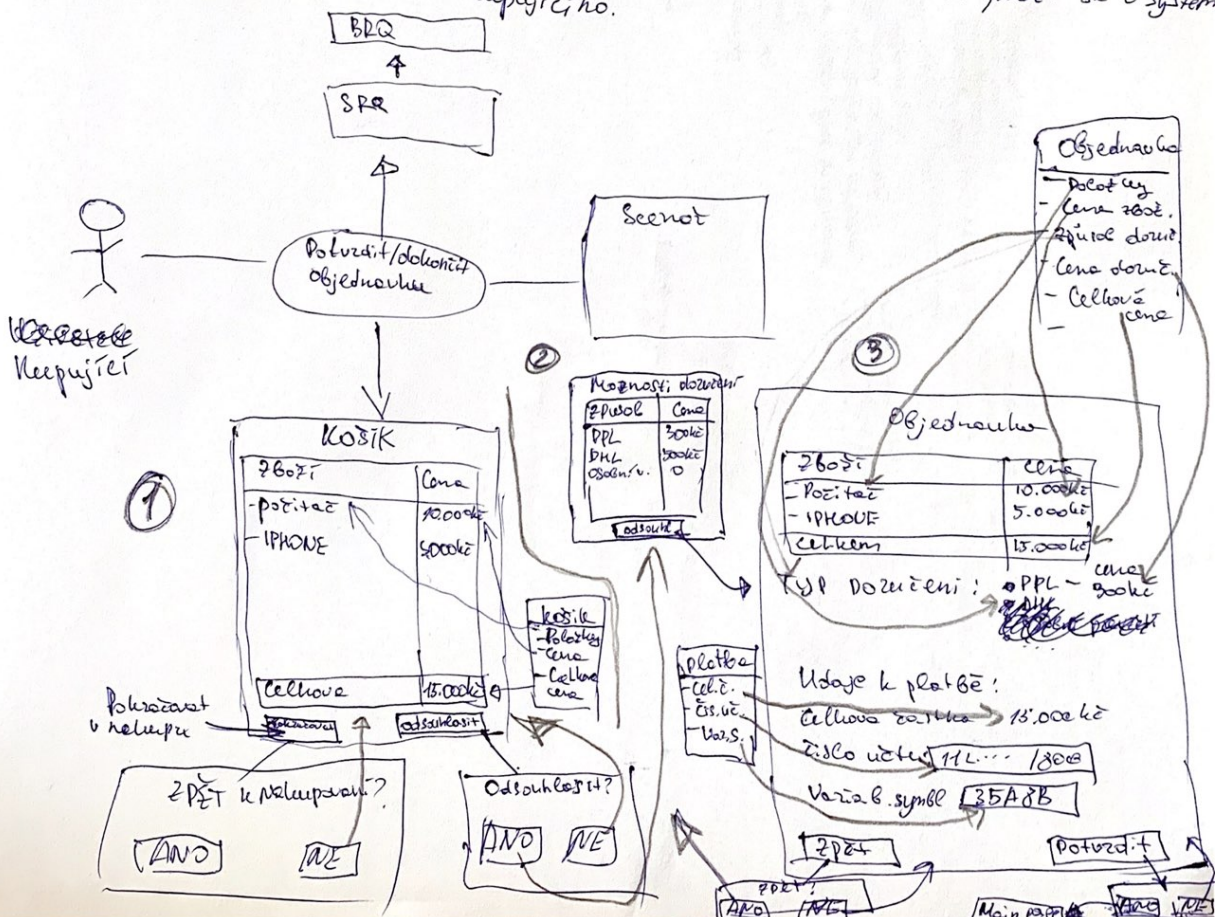 BRQ
SRQ
Potvrdit/dokončit
Objednavku
Kupující
Objednavka
- Položky
- Cena zbož.
- Způsob doruč.
- Cena doruč.
- Celková
cena
1
KOŠÍK
Zboží Cena
- počítač 10.000kč
- IPHONE 5000kč
Celkova 15.000kč
Pokračovat
v nakupu
odsouhlasit
košík
- Položky
- Cena
- Celkova
cena
ZPĚT k Nakupovaní?
ANO NE
Odsouhlasit?
ANO NE
2
Možnosti doručení
Způsob Cena
PPL 300kč
DHL 500kč
osobní v. 0
odsouhl.
3
Objednavka
Zboží Cena
- Počítač 10.000kč
- IPHONE 5.000kč
Celkem 15.000kč
TYP Doručení: PPL - cena
300kč
DHL
platba
- Cel.č.
- Čís.úč.
- Var.s.
Udaje k platbě:
Celkova častka 15.000kč
Číslo učtu 112.... /800
Variab. symbl 35A8B
Zpět Potvrdit
zpět?
ANO NE
ANO NE